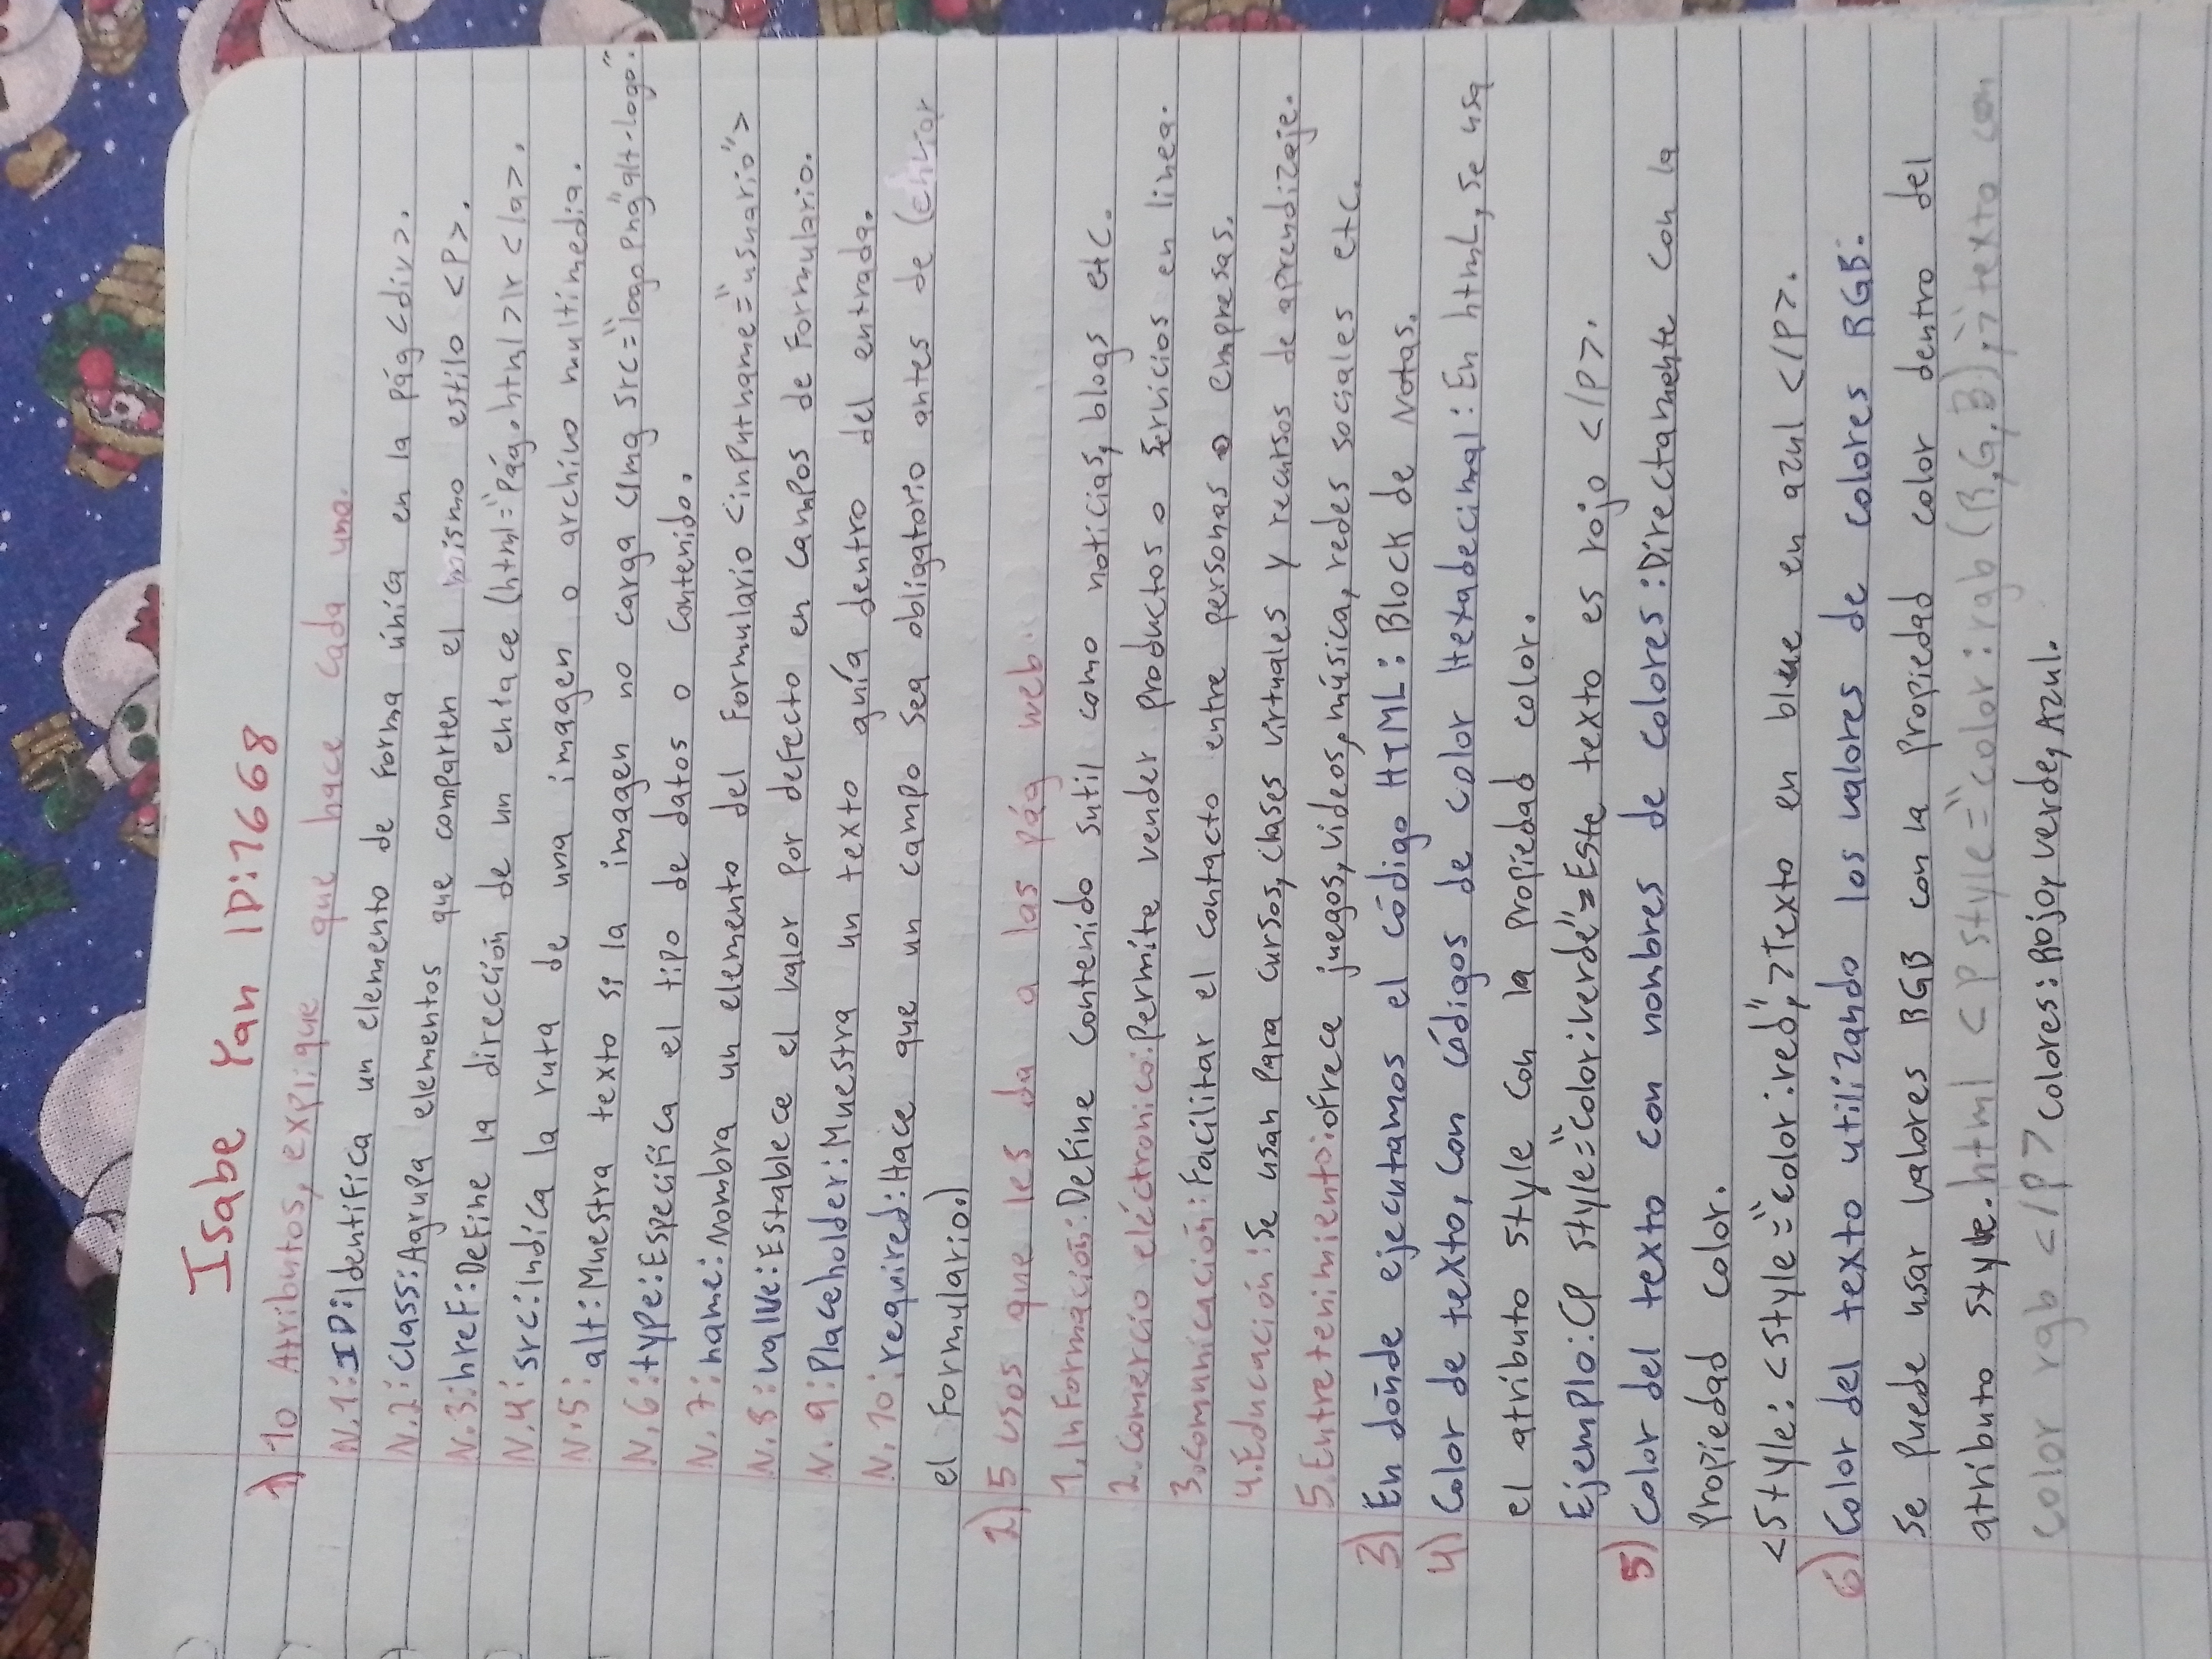 Isabe Yan ID:1668
1) 10 Atributos, explique que hace cada una.
N.1: ID: Identifica un elemento de forma única en la pág <div>.
N.2: Class: Agrupa elementos que comparten el mismo estilo <P>.
N.3: href: Define la dirección de un enlace (html="Pág.html>Ir </a>.
N.4: src: Indica la ruta de una imagen o archivo multimedia.
N.5: alt: Muestra texto si la imagen no carga <img src="logo png"alt-logo".
N.6: type: Especifica el tipo de datos o contenido.
N.7: name: Nombra un elemento del Formulario <input name="usuario">
N.8: value: Establece el valor por defecto en campos de Formulario.
N.9: Placeholder: Muestra un texto guía dentro del entrada.
N.10: required: Hace que un campo sea obligatorio antes de (enviar
el Formulario.)
2) 5 usos que les da a las pág web.
1. Información: Define contenido sutil como noticias, blogs etc.
2. Comercio eléctronico: Permite vender productos o servicios en linea.
3. Comunicación: Facilitar el contacto entre personas o empresas.
4. Educación: Se usan para cursos, clases virtuales y recursos de aprendizaje.
5. Entretenimiento: ofrece juegos, videos, música, redes sociales etc.
3) En dónde ejecutamos el código HTML: Block de Notas.
4) Color de texto, con códigos de color Hexadecimal: En html, se usa
el atributo style con la propiedad color.
Ejemplo: <P style="color:verde"=Este texto es rojo </P>.
5) Color del texto con nombres de colores: Directamente con la
Propiedad color.
<Style: <style="color:red",>Texto en blue en azul </P>.
6) Color del texto utilizando los valores de colores RGB:
Se puede usar valores RGB con la propiedad color dentro del
atributo style. html <P style="color: rgb (R,G,B),"> texto con
color rgb </P> Colores: Rojo, verde, Azul.